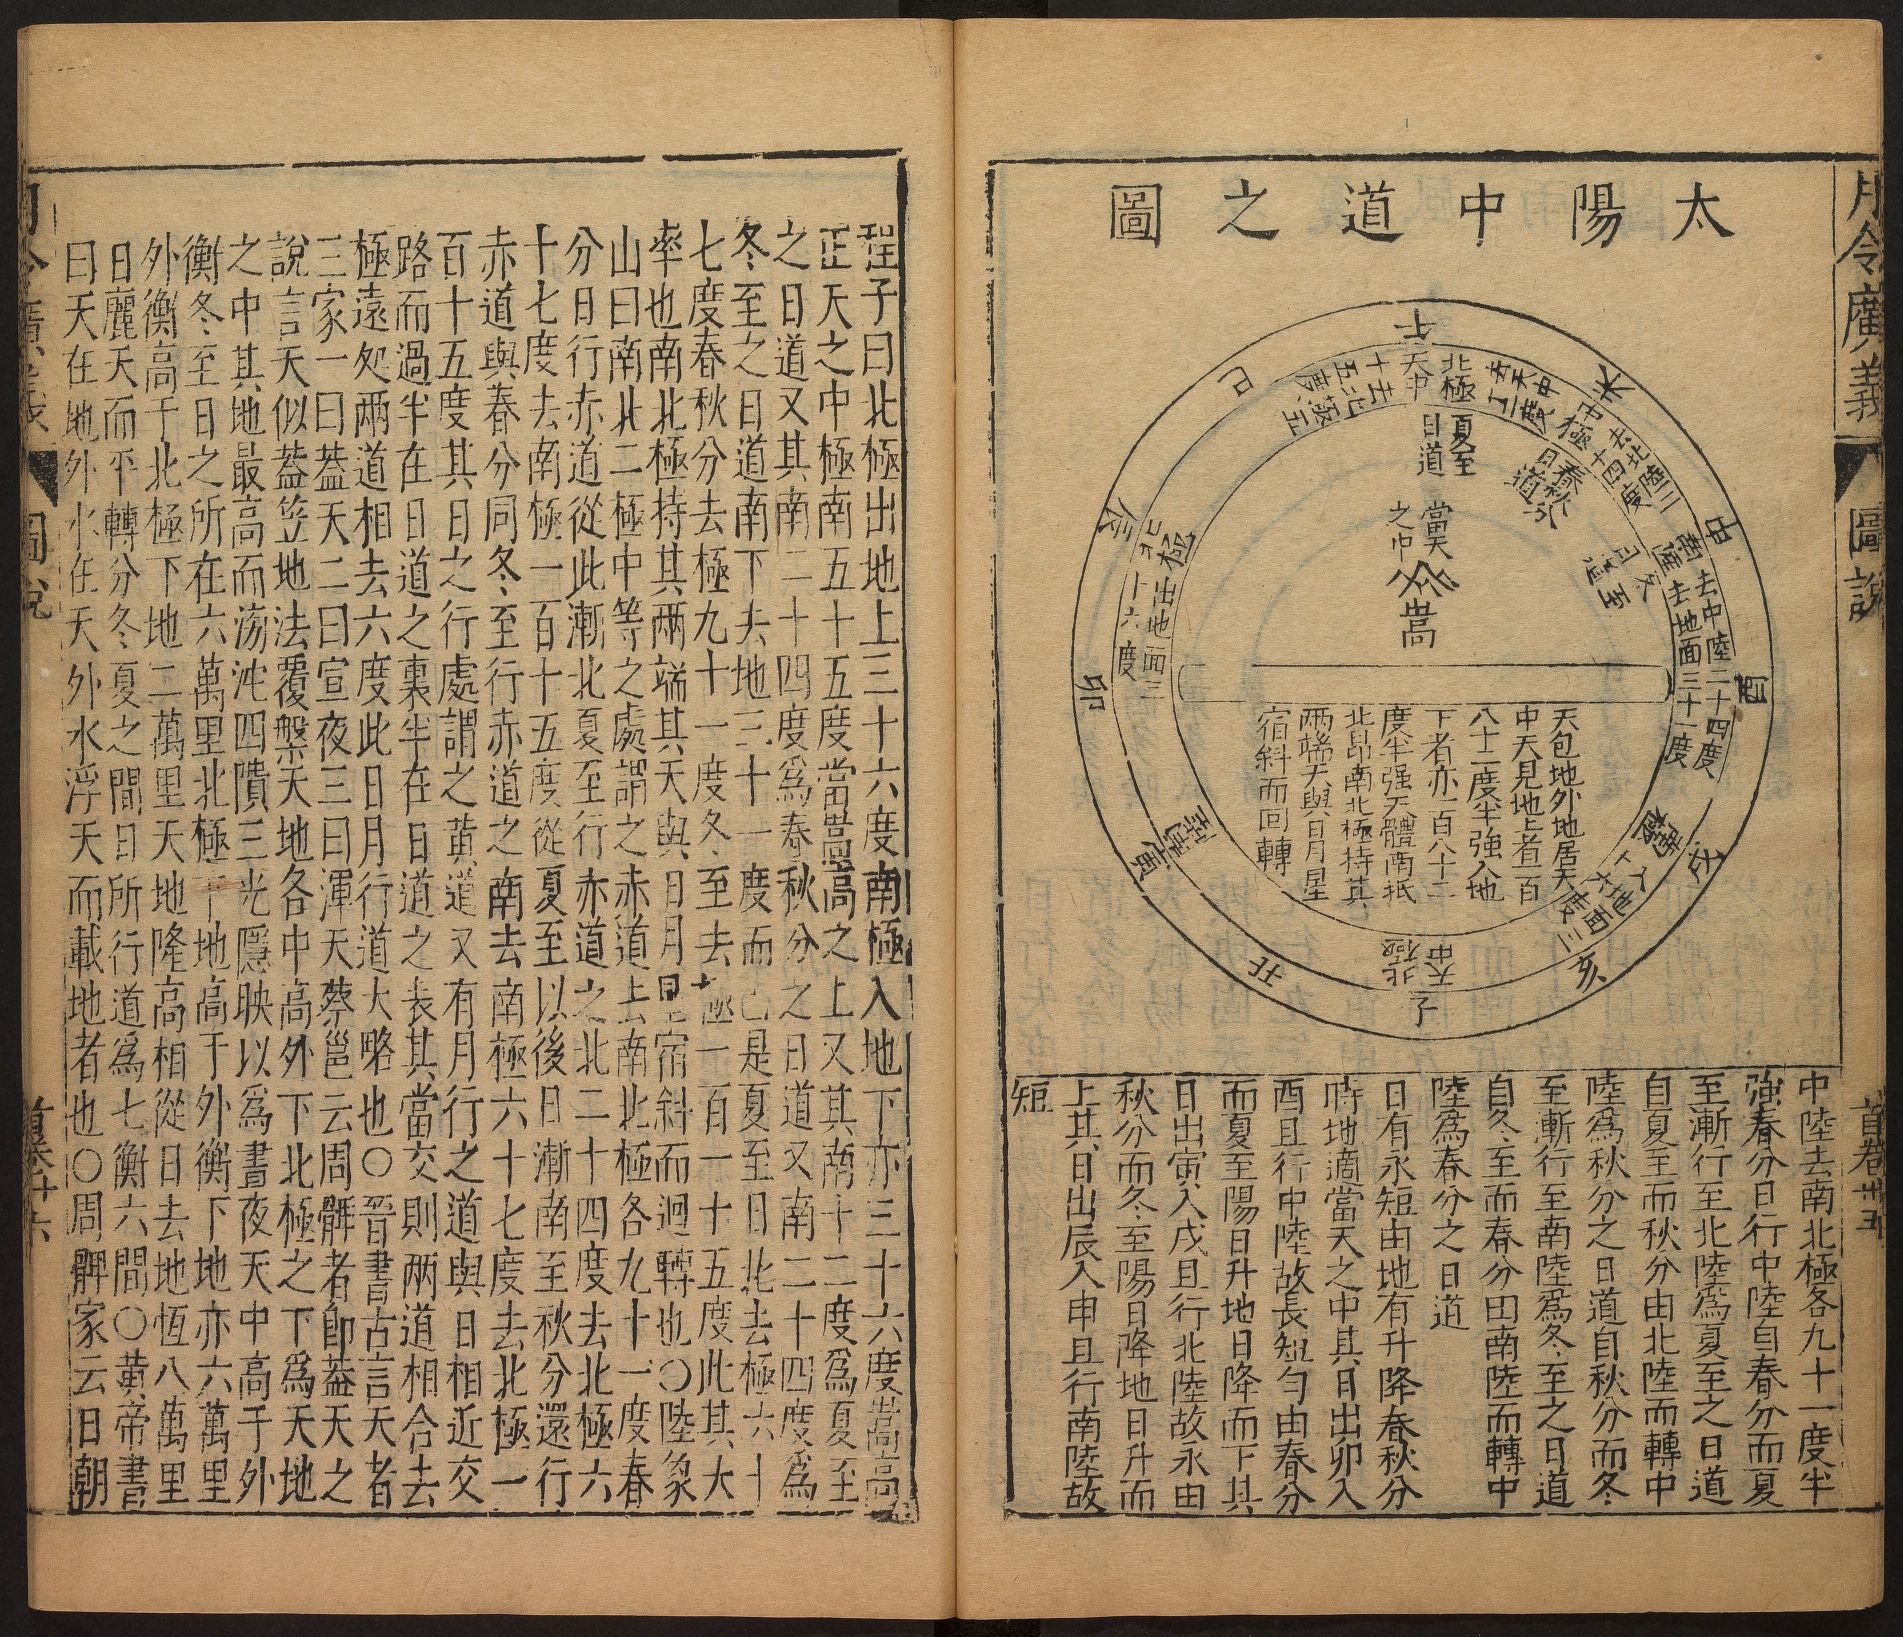 月令廣義
圖說
首卷
太陽中道之圖
午
未
申
酉
亥
子
丑
寅
卯
辰
巳
天中
北極
夏至
日道
春秋分
日道
當天
之中
嵩
去中陸二十四度
去地面三十一度
南極
入地面三
十六度
北極
出地面三
十六度
天包地外地居天
中天見地上者一百
八十二度半強入地
下者亦一百八十二
度半强天體南抵
北昂南北極持其
兩端天與日月星
宿斜而回轉
中陸去南北極各九十一度半
強春分日行中陸自春分而夏
至漸行至北陸爲夏至之日道
自夏至而秋分由北陸而轉中
陸爲秋分之日道自秋分而冬
至漸行至南陸爲冬至之日道
自冬至而春分由南陸而轉中
陸爲春分之日道
日有永短由地有升降春秋分
時地適當天之中其日出卯入
酉且行中陸故長短勻由春分
而夏至陽日升地日降而下其
日出寅入戌且行北陸故永由
秋分而冬至陽日降地日升而
上其日出辰入申且行南陸故
短
程子曰北極出地上三十六度南極入地下亦三十六度嵩高
正天之中極南五十五度當嵩高之上又其南十二度爲夏至
之日道又其南二十四度爲春秋分之日道又南二十四度爲
冬至之日道南下去地三十一度而已是夏至日北去極六十
七度春秋分去極九十一度冬至去極一百一十五度此其大
率也南北極持其兩端其天與日月星宿斜而迴轉也〇陸象
山曰南北二極中等之處謂之赤道去南北極各九十一度春
分日行赤道從此漸北夏至行赤道之北二十四度去北極六
十七度去南極一百十五度從夏至以後日漸南至秋分還行
赤道與春分同冬至行赤道之南去南極六十七度去北極一
百十五度其日之行處謂之黄道又有月行之道與日相近交
路而過半在日道之裏半在日道之表其當交則兩道相合去
極遠処兩道相去六度此日月行道大略也〇晉書古言天者
三家一曰蓋天二曰宣夜三曰渾天蔡邕云周髀者卽蓋天之
說言天似蓋笠地法覆槃天地各中高外下北極之下爲天地
之中其地最高而滂沱四隤三光隱映以爲晝夜天中高于外
衡冬至日之所在六萬里北極下地高于外衡下地亦六萬里
外衡高于北極下地二萬里天地隆高相從日去地恆八萬里
日麗天而平轉分冬夏之間日所行道爲七衡六間〇黃帝書
曰天在地外水在天外水浮天而載地者也〇周髀家云日朝
圖說